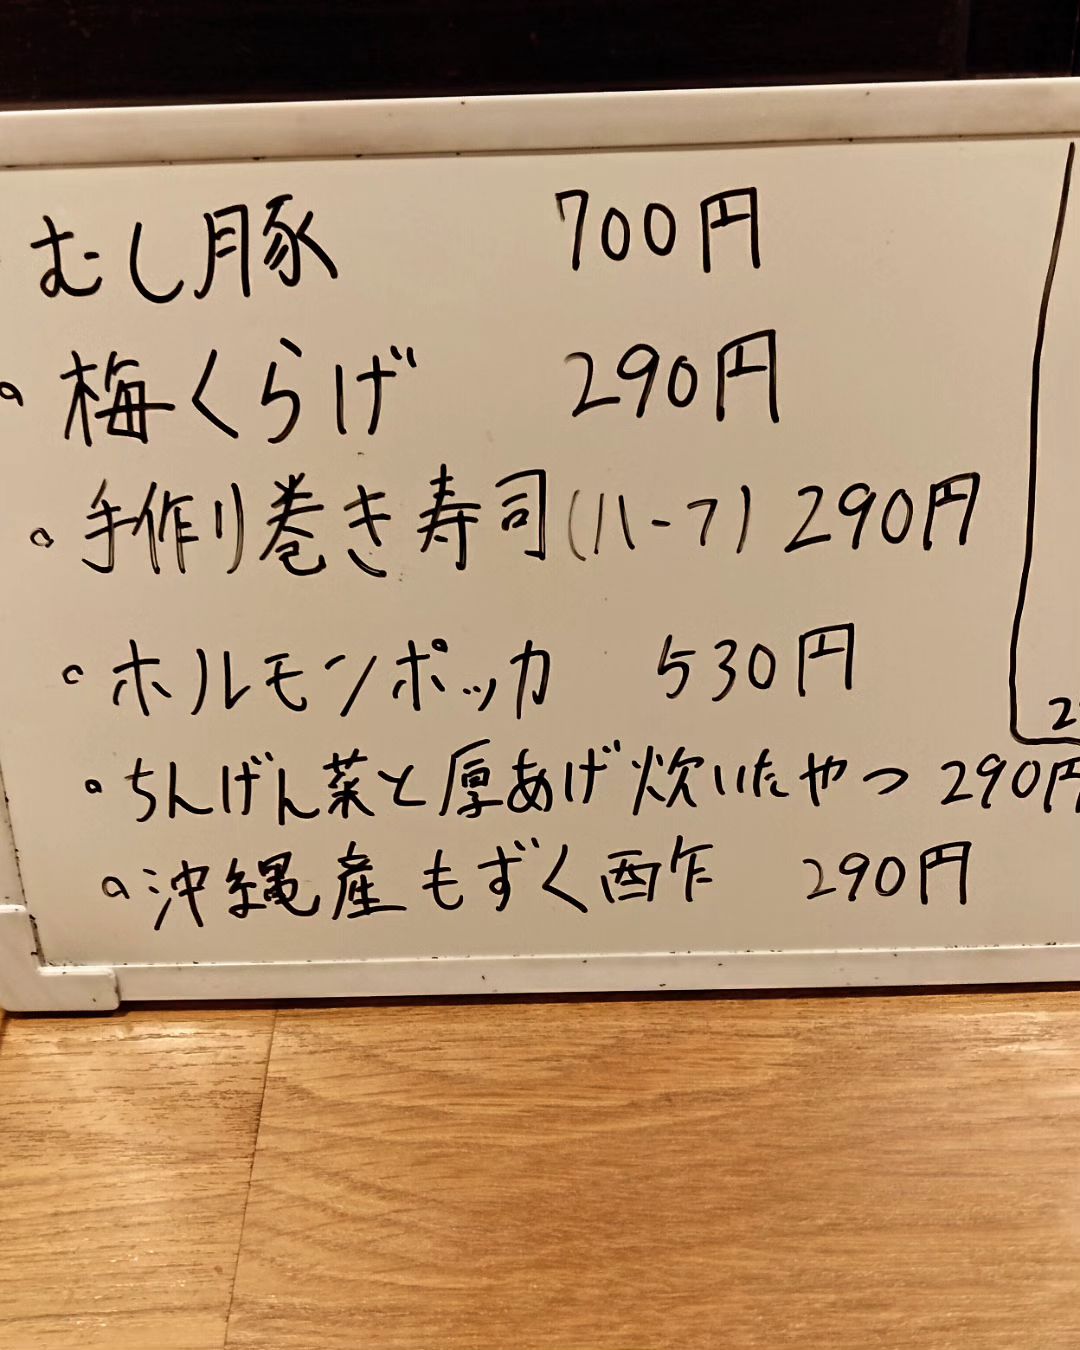 むし豚 700円
・梅くらげ 290円
・手作り巻き寿司(ハーフ) 290円
・ホルモンポッカ 530円
・ちんげん菜と厚あげ炊いたやつ 290円
・沖縄産もずく酢 290円